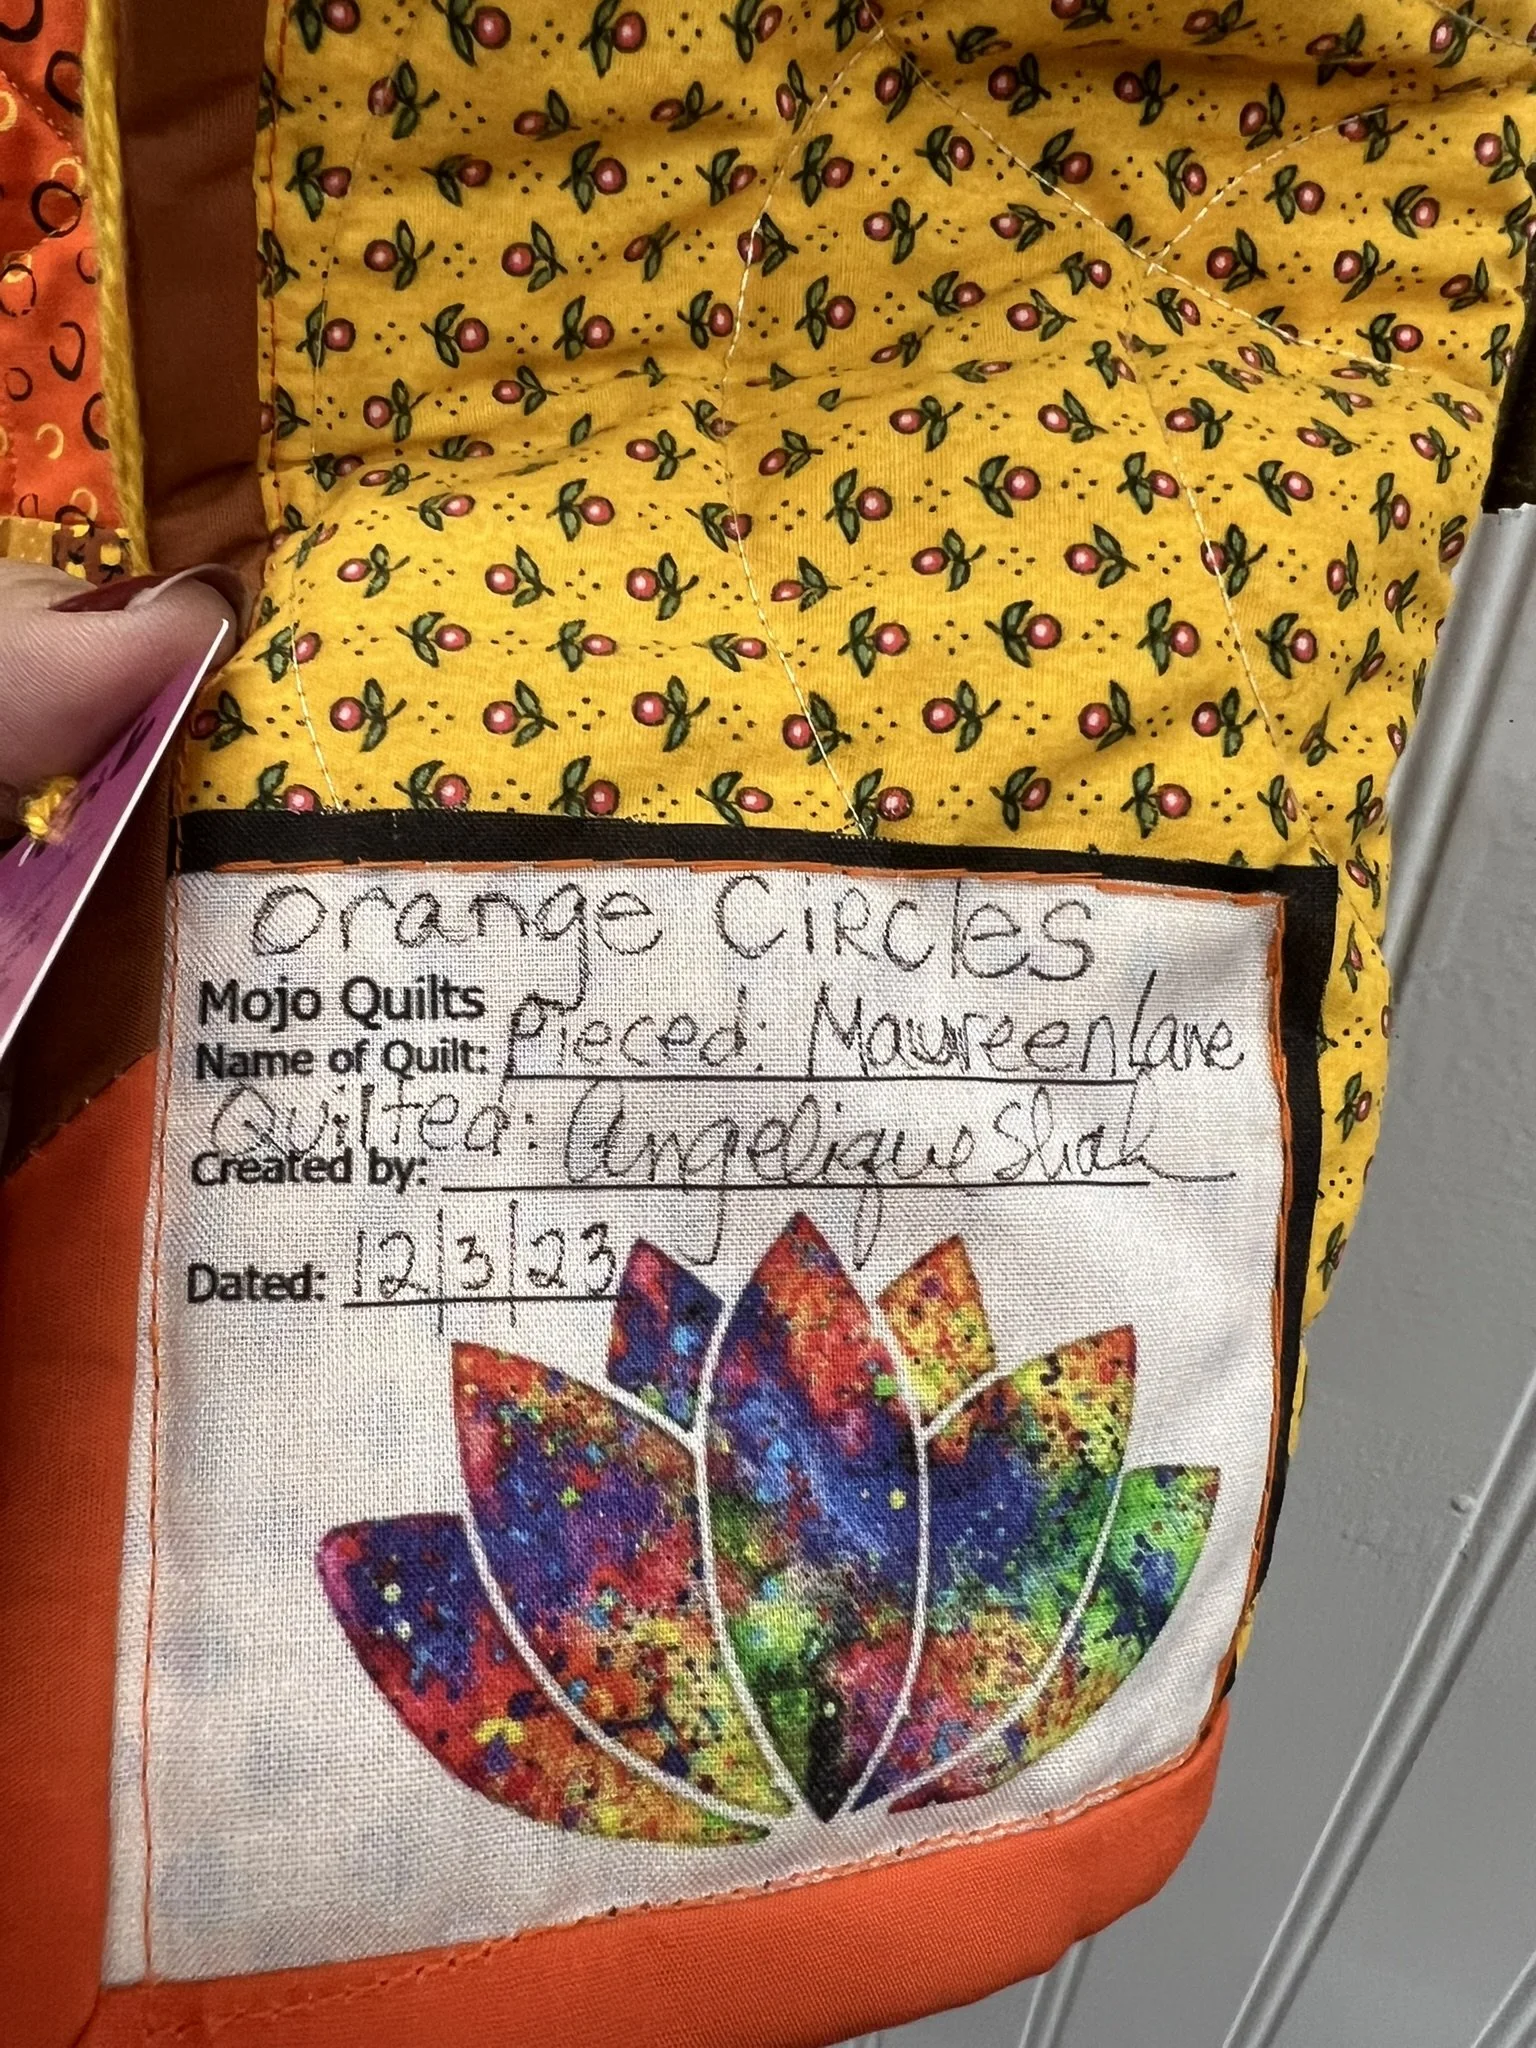 Orange Circles
Mojo Quilts
Name of Quilt: Pieced: Maureen Lane
Quilted: Angelique
Created by:
Dated: 12/3/23